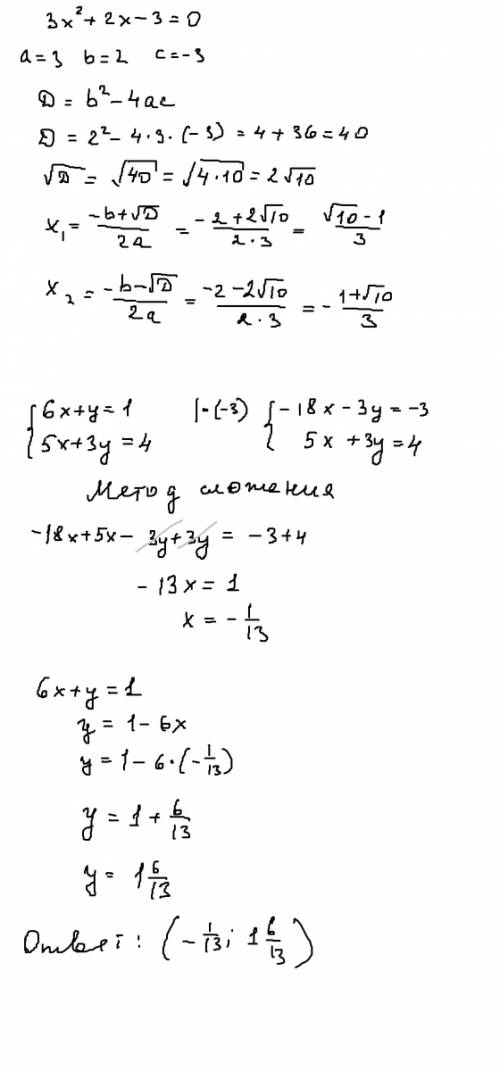 3x² + 2x - 3 = 0
a = 3 b = 2 c = -3
D = b² - 4ac
D = 2² - 4·3·(-3) = 4 + 36 = 40
√D = √40 = √4·10 = 2√10
x₁ = (-b+√D)/(2a) = (-2+2√10)/(2·3) = (√10-1)/3
x₂ = (-b-√D)/(2a) = (-2-2√10)/(2·3) = -(1+√10)/3
{6x+y=1 |·(-3) {-18x-3y=-3
{5x+3y=4 {5x+3y=4
Метод сложения
-18x+5x-3y+3y = -3+4
-13x = 1
x = -1/13
6x+y=1
y = 1-6x
y = 1-6·(-1/13)
y = 1+6/13
y = 1 6/13
Ответ: (-1/13; 1 6/13)